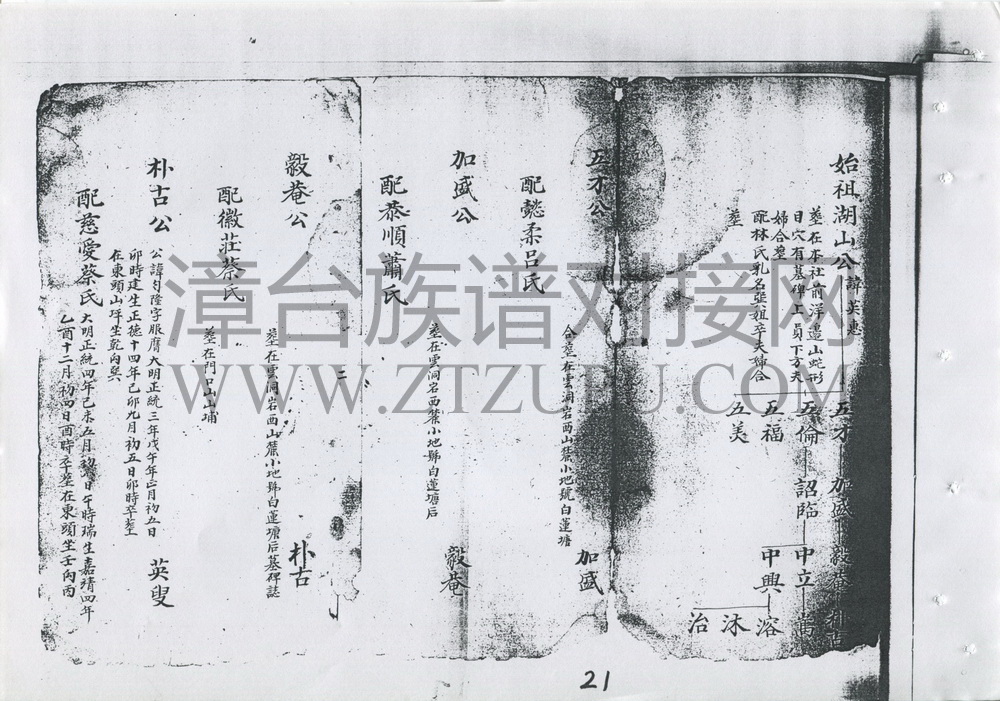 始祖湖山公 諱英惠
墓在本社前洋邉山蛇形
日穴有墓碑上員下方夫
婦合塟
配林氏乳名
卒夫婦合
塟
五才 加盛 毅菴 朴古
五倫 詔臨 中立
五福 中興 溶
五美 沐
治
五才公
合塟在雲洞岩西山麓小地號白蓮塘 加盛
配懿柔吕氏
加盛公
塟在雲洞岩西麓小地號白蓮塘后 毅菴
配恭順蕭氏
二
毅菴公
塟在雲洞岩西山麓小地號白蓮塘后墓碑誌 朴古
配徽莊蔡氏
塟在門口山山埔
朴古公
公諱 陞字服膺大明正統三年戊午年正月初五日
卯時建生正德十四年己卯九月初五日卯時卒塟
在東頭山坪坐乾向巽 英叟
配慈愛蔡氏
大明正統四年己未五月初 日午時瑞生嘉靖四年
乙酉十二月初四日酉時卒塟在東頭坐壬向丙
漳台族谱对接网
WWW.ZTZUPU.COM
21